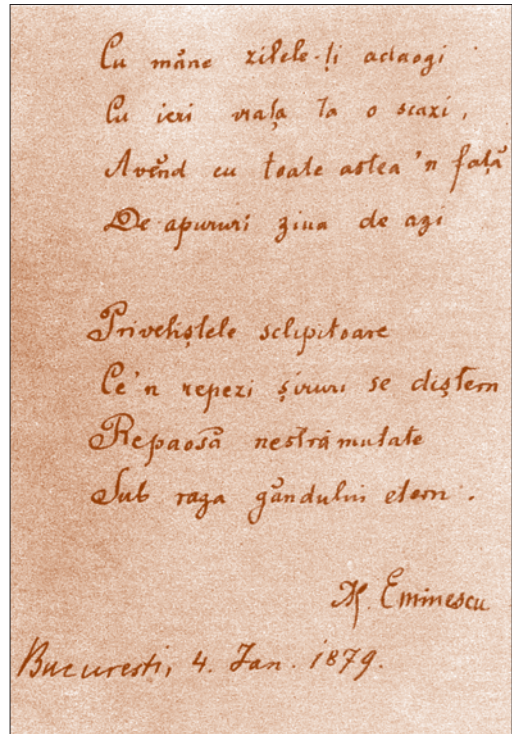 Cu mâne zilele-ți adaogi
Cu ieri viața ta o scazi,
Avênd cu toate astea 'n față
De apururi ziua de azi
Priveliștele sclipitoare
Ce 'n repezi șiruri se diștern
Repaosă nestrămutate
Sub raga gândului etern.
M. Eminescu
Bucuresti, 4. Ian. 1879.